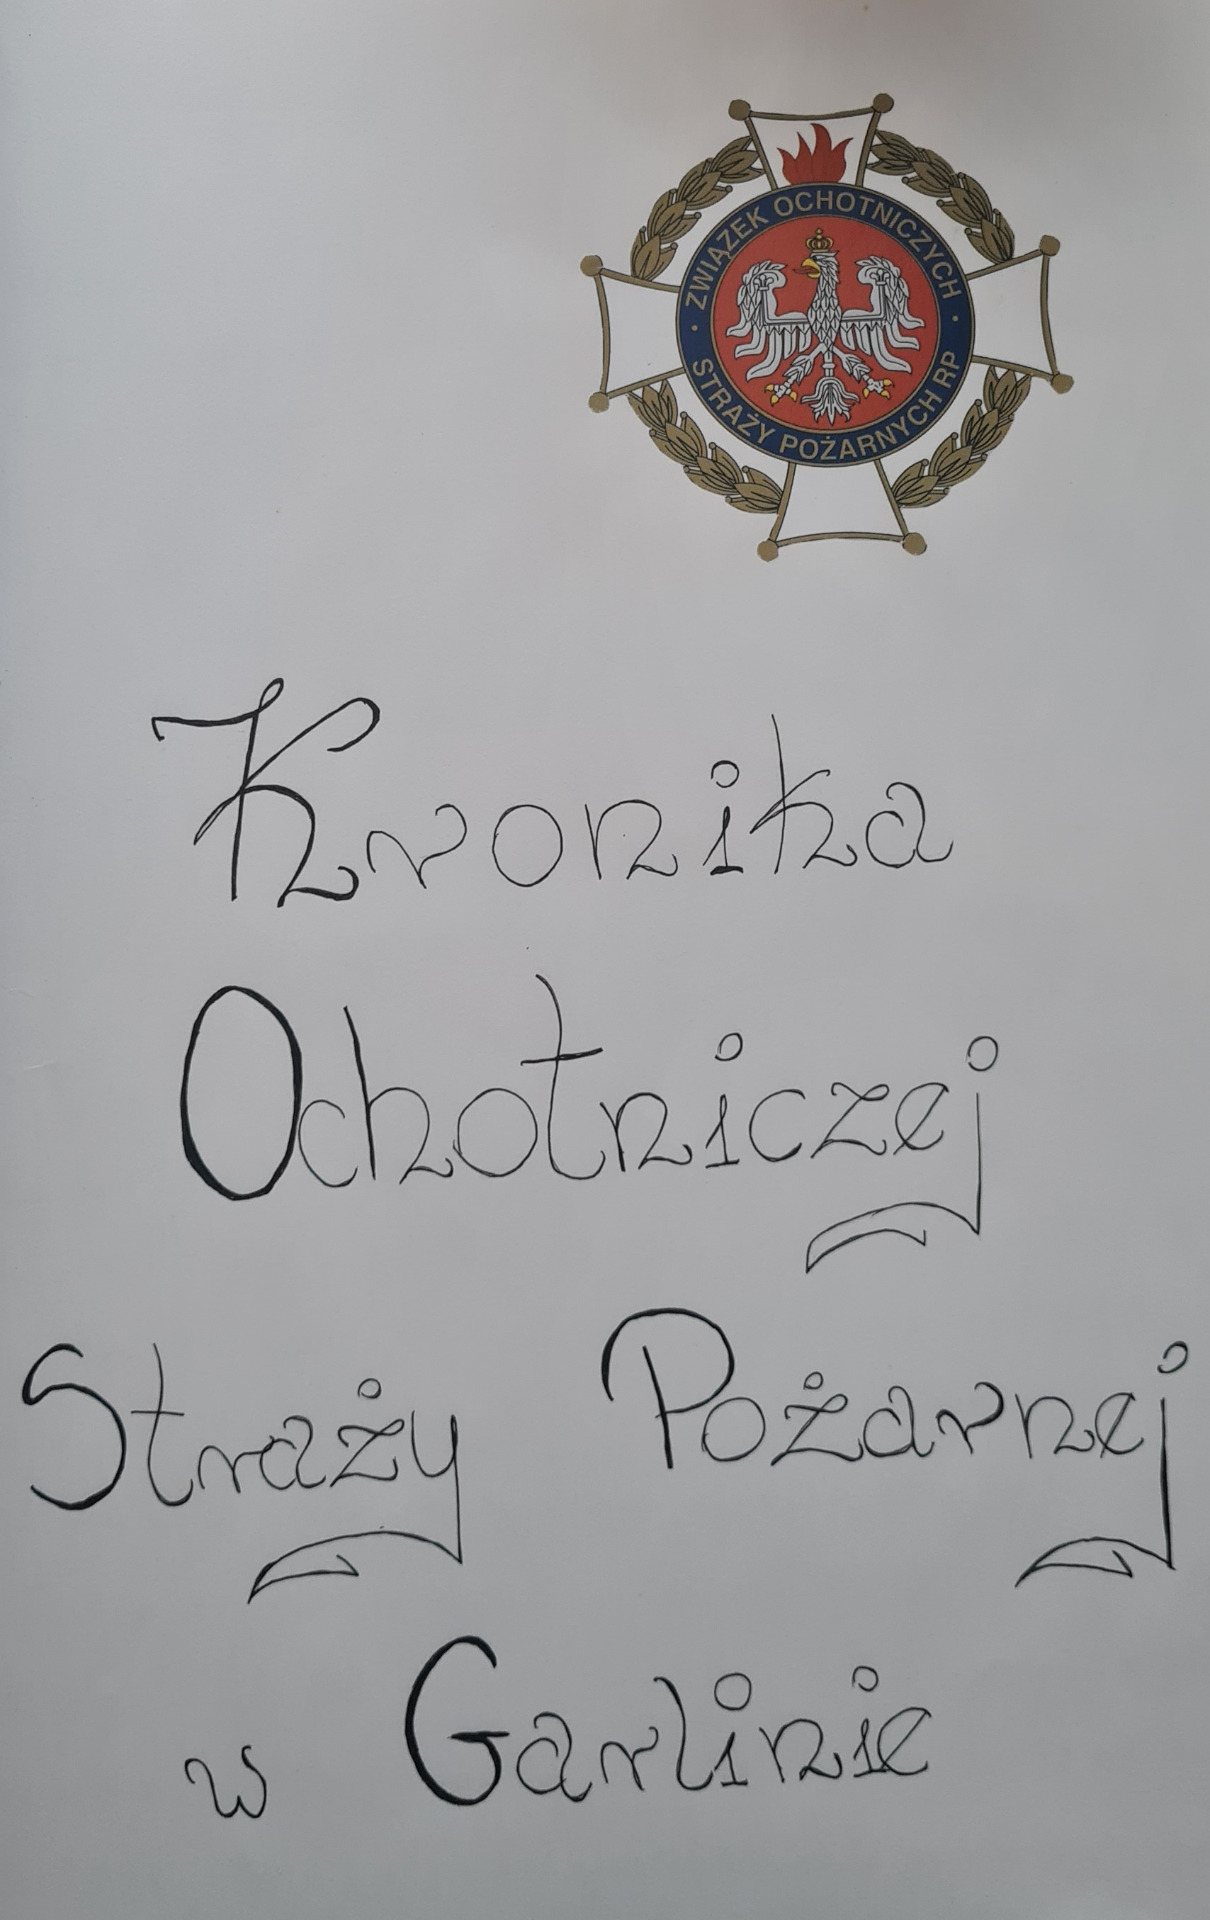 ZWIĄZEK OCHOTNICZYCH
STRAŻY POŻARNYCH RP
Kronika
Ochotniczej
Straży Pożarnej
w Garlinie